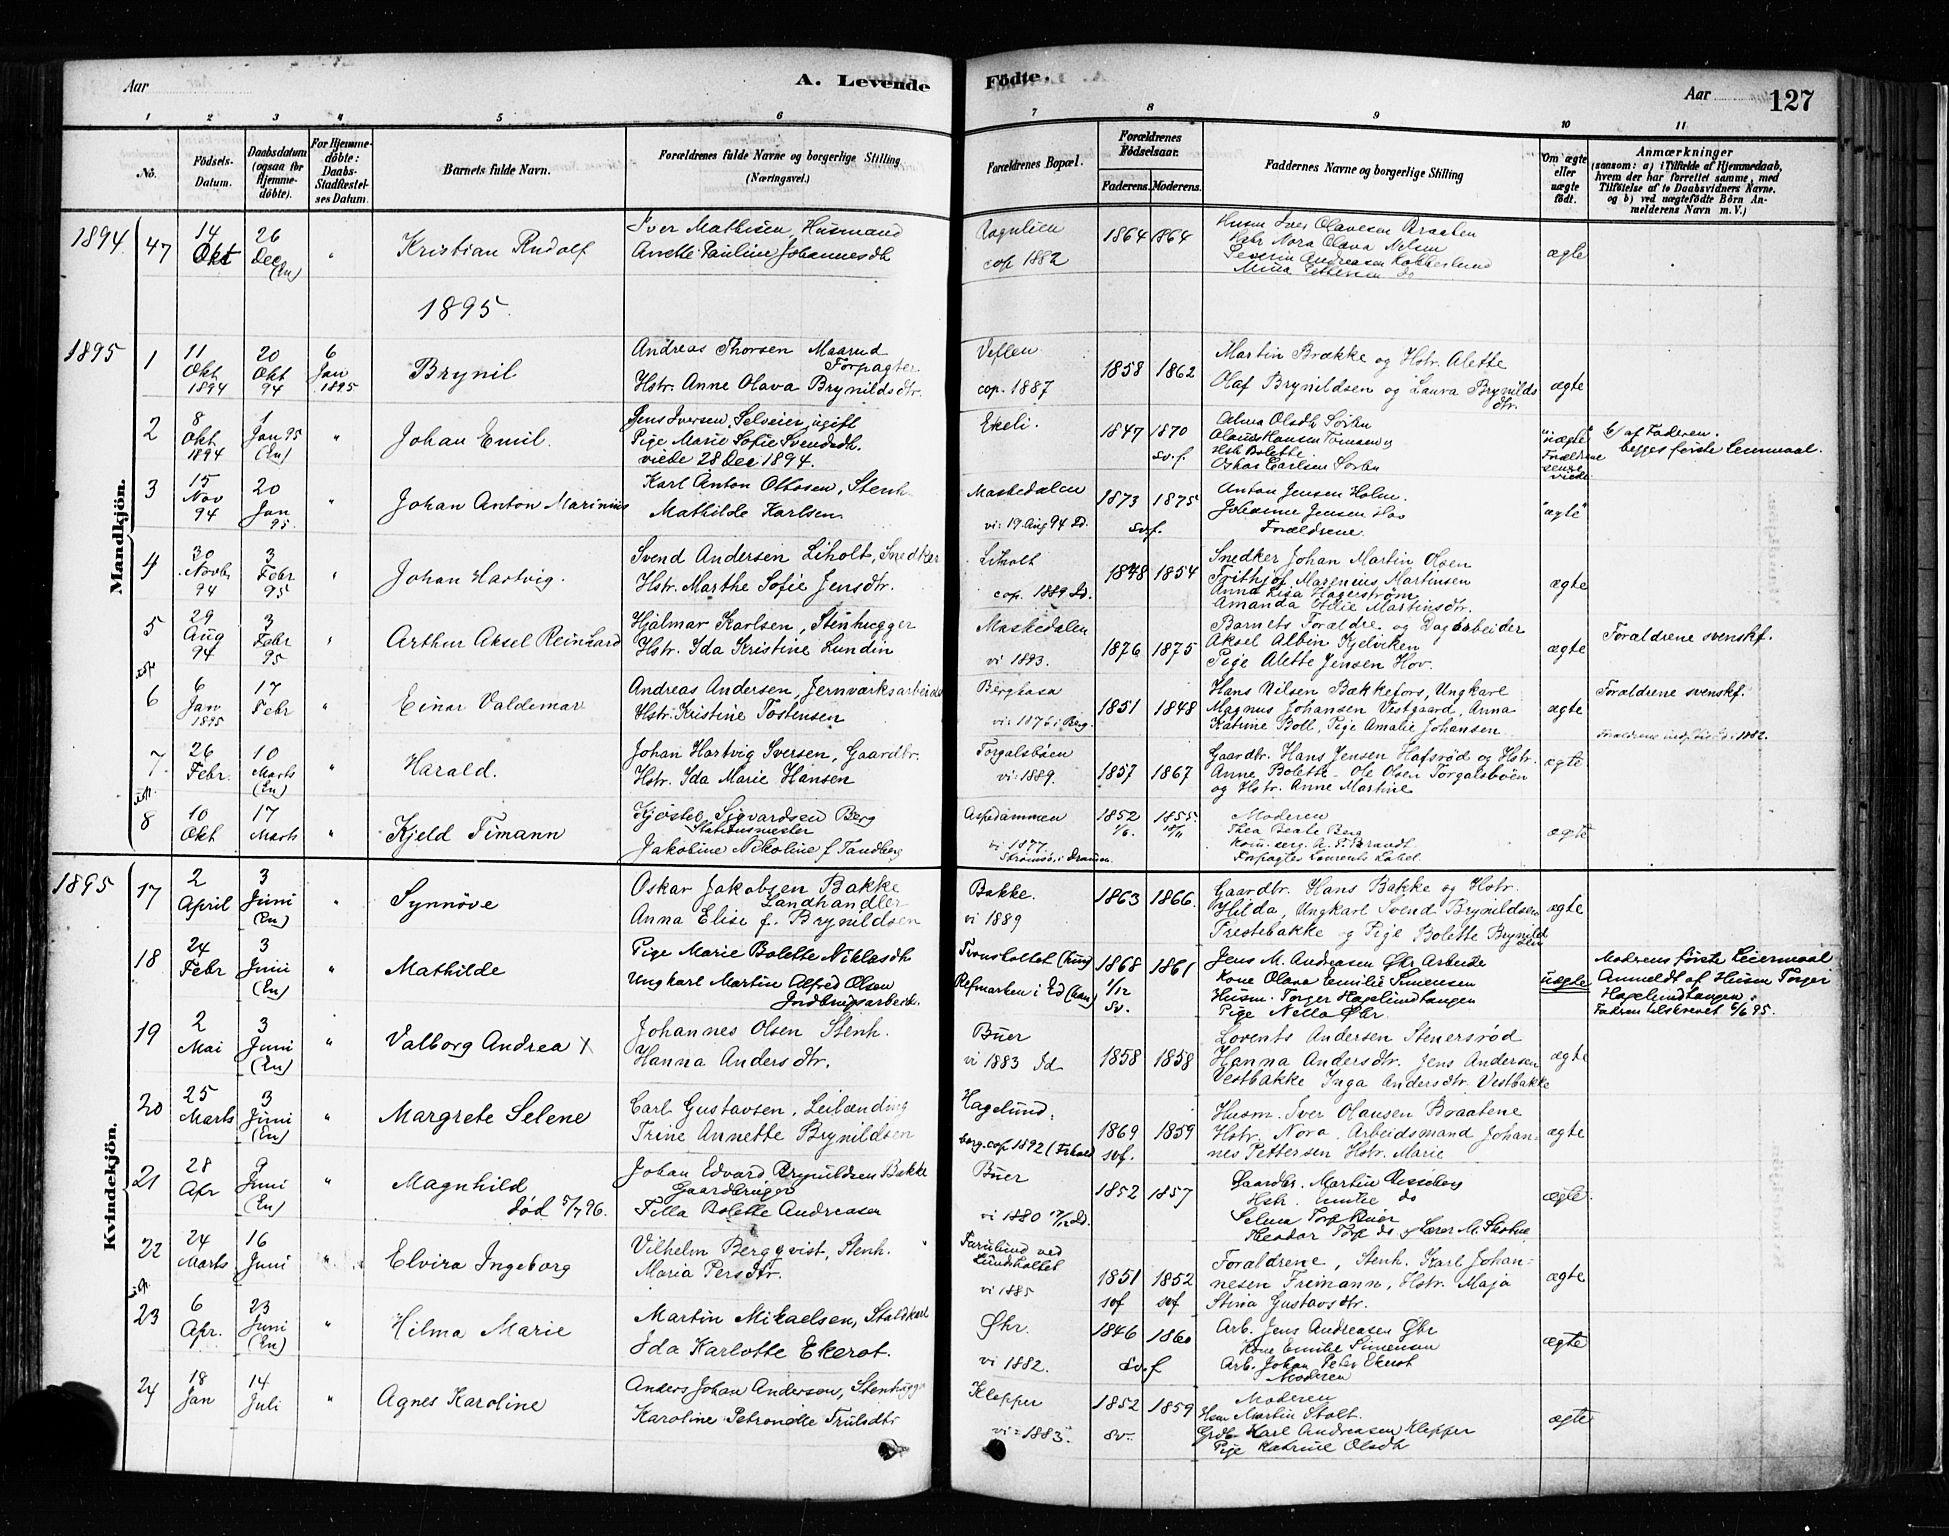 Aar
A. Levende
Födte.
Aar
127
1 2 3 4 5 6 7 8 9 10 11
No.
Födsels-Datum.
Daabsdatum (ogsaa for Hjemme-döbte).
For Hjemme-döbte: Daabs-Stadfæstel-ses Datum.
Barnets fulde Navn.
Forældrenes fulde Navne og borgerlige Stilling (Næringsvei.)
Forældrenes Bopæl.
Forældrenes Födselsaar.
Faderens. Moderens.
Faddernes Navne og borgerlige Stilling
Om ægte eller uægte födt.
Anmærkninger
(saasom: a) i Tilfælde af Hjemmedaab,
hvem der har forrettet samme, med
Tilföielse af to Daabsvidners Navne.
og b) ved uægtefödte Börn An-
melderens Navn m. V.)
Mandkjön.
1894 47 14 Okt 26 Dec (En) " Kristian Rudolf
Iver Mathisen, Husmand
Anette Pauline Johannesdt
cop 1882
1864 1864
Husm Iver Olavesen Braaten
Hstr Nora Olava Nelsen
Severin Andreasen
Mina Pettersen do
ægte
1895.
1895 1 11 Okt 1894 20 Okt 94 6 Jan 1895 Brynil
Andreas Thorsen Maarud
Forpagter
Hstr. Anne Olava Brynildsdtr.
Veflen
cop. 1887
1858 1862
Martin Brække og Hstr. Alette
Olaf Brynildsen og Laura Brynilds
dtr.
ægte
2 8 Okt 1894 1 Jan 95 (En) " Johan Emil.
Jens Iversen, Selveier, ugift
Pige Marie Sofie Svendsdt.
viede 28 Dec 1894.
Ekeli.
1847 1870
sv. f.
Alma Olsdt Sörbö
Olaus Hansen
Hstr Bolette
Oskar Carlsen
"uægte"
Forældrene
senere
viede
b/ af Faderen.
begges første Leiermaal.
3 15 Nov 94 20 Jan 95. " Johan Anton Marinius
Karl Anton Ottosen, Stenh
Mathilde Karlsen
Maskedalen
vi: 19. Aug 94 Id.
1873 1875
sv.f.
Anton Jensen Holm.
Johanne Jensen Hov
Forældrene.
"ægte"
4 30 Novbr 94 3 Febr 95 " Johan Hartvig.
Svend Andersen Liholt, Snedker
Hstr. Marthe Sofie Jensdtr.
Liholt
cop. 1889 Id.
1848 1854
Snedker Johan Martin Olsen
Frithjof Marenius Martinsen
Anna Lisa Hagerstrøm
Amanda Otelie Martinsdtr.
ægte
5 29 Aug 94 3 Febr 95 " Arthur Aksel Reinhard
Hjalmar Karlsen, Stenhugger
Hstr. Ida Kristine Lundin
Maskedalen
vi 1893.
1876 1875
Barnets Forældre og Dagarbeider
Aksel Albin Kjelviken
Pige Alette Jensen Hov.
ægte
Forældrene svenskf.
6 6 Jan 1895 17 Febr " Einar Valdemar
Andreas Andersen, Jernværksarbeider
Hstr. Kristine Tostensen
Berghasa
vi: 1876 i Berg.
1851 1848
Hans Nilsen Bækkefors, Ungkarl
Magnus Johansen Vestgaard, Anna
Katrine Boll, Pige Amalie Johansen
ægte
Forældrene svenskf.
7. 26 Febr. 10 Marts (En) " Harald.
Johan Hartvig Iversen, Gaardbr.
Hstr. Ida Marie Hansen
Torgalsbøen
vi: 1889.
1857 1867
Gaardbr. Hans Jensen Hafsrød og Hstr.
Anne Bolette - Ole Olsen Torgalsbøen
og Hstr. Anne Martine
ægte
8 10 Okt 17 Marts " Kjeld Timann
Kjøstel Sigvardsen Berg
Stationsmester
Jakobine Nikoline f Tandberg
Aspedammen
vi 1877.
Strømsö i Drammen.
1852 1/6. 1855. 18/11
Moderen
Thea Beate Berg
Forpagter Laurents
ægte
Kvindekjön.
1895 17 2 April 3 Juni (En) " Synnöve
Oskar Jakobsen Bakke
Landhandler
Anna Elise f. Brynildsen
Bakke.
vi 1889
1863 1866.
Gaardbr. Hans Bakke og Hstr.
Hilda, Ungkarl Svend Brynildsen
Prestebakke og Pige Bolette Brynild
sen
ægte
18 24 Febr 3 Juni (En) " Mathilde
Pige Marie Bolette Niklasdt
Ungkarl Martin Alfred Olsen
Jordbrugsarbeid.
(hun)
Refmarken i Ed (han)
1868 1/12 1861
Sv.
Jens M. Andreasen Øbr Arbeide
Kone Olava Emilie Simensen
Husm. Torger Hagelundtangen
Pige Nella Øbr.
uægte
Modrens første Leiermaal
Anmeldt af Husm Torger
Hagelundtangen.
Fadren tilskrevet 6/6 95.
19 2 Mai 3 Juni (En) " Valborg Andrea X
Johannes Olsen Stenh.
Hanna Andersdtr.
Buer
vi 1883 Id
1858 1858
Lovents Andersen Stenersrød
Hanna Andersdtr. Jens Andersen
Vestbakke Inga Andersdtr. Vestbakke
ægte
20 25 Marts 3 Juni (En) " Margrete Selene
Carl Gustavsen, Leilænding
Trine Annette Brynildsen
Hagelund.
borg. cop 1892 (Frhald)
1869 1859
svf.
Husm. Iver Olausen Braatene
Hstr. Nora. Arbeidsmand Johan-
nes Pettersen Hstr. Marie
ægte
21 28 Apr 9 Juni (En) " Magnhild
død 5/7 96.
Johan Edvard Brynildsen Bakke
Gaardbruger
Tilla Bolette Andreasen
Buer
vi 1880 17/12 Id.
1852 1857
Gaardbr. Martin
Hstr. Emilie do
Selma Torp Buer
Theodor Torp do
ægte.
22 24 Marts 16 Juni " Elvira Ingeborg
Vilhelm Bergqvist, Stenh.
Maria Persdtr.
Furulund ved
Lundholtet
vi 1885
1851 1852
svf svf
Forældrene, Stenh. Karl Johan-
nesen Freimann, Hstr. Maja
Stina Gustavsdtr.
ægte
23 6 Apr. 23 Juni (En) " Hilma Marie
Martin Mikaelsen, Staldkarl
Ida Karlotte Ekerot.
Øbr.
vi 1882.
1846 1860
sv.f
Arb. Jens Andreasen Øbr
Kone Emilie Simensen
Arb. Johan Peter Ekerot
Moderen
ægte
24 18 Jan 14 Juli " Agnes Karoline
Anders Johan Anderson, Stenhugger
Karoline Petronelle Trulsdtr
Klepper
vi: 1883.
1852 1859
sv..
Moderen
Hsm Martin Stolt.
Grdbr Karl Andreasen Klepper
Pige Katrine Olsdt
ægte